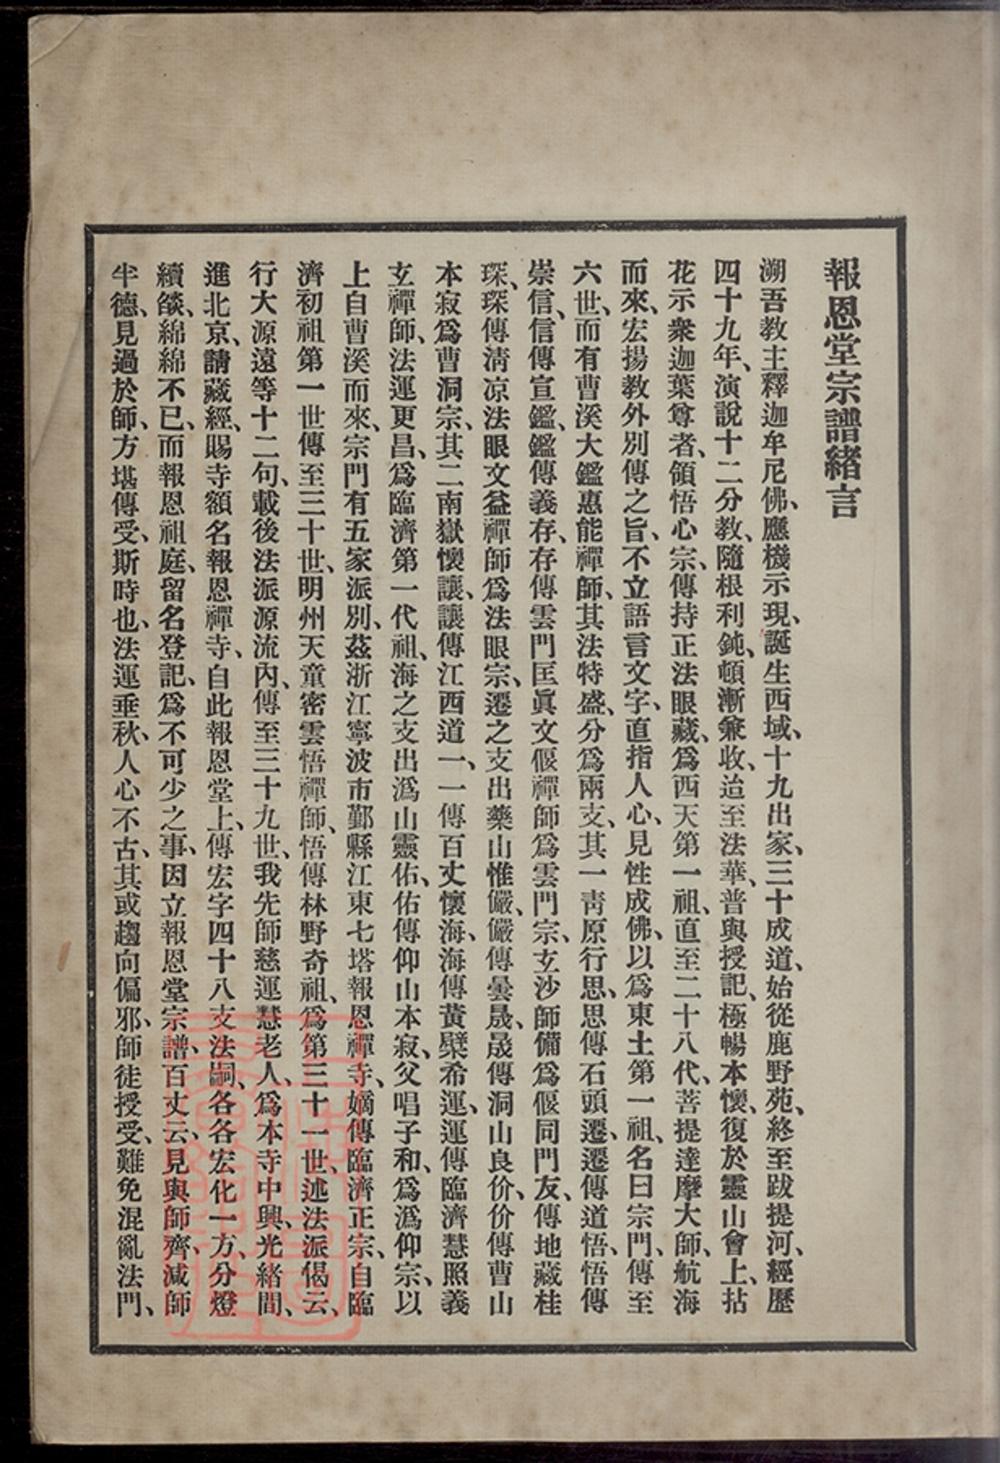 報恩堂宗譜緒言
溯吾教主釋迦牟尼佛、應機示現、誕生西域、十九出家、三十成道、始從鹿野苑、終至跋提河、經歷
四十九年、演說十二分教、隨根利鈍、頓漸兼收、迨至法華、普與授記、極暢本懷、復於靈山會上、拈
花示衆、迦葉尊者、領悟心宗、傳持正法眼藏、爲西天第一祖、直至二十八代、菩提達摩大師、航海
而來、宏揚教外別傳之旨、不立語言文字、直指人心、見性成佛、以爲東土第一祖、名曰宗門、傳至
六世、而有曹溪大鑑惠能禪師、其法特盛、分爲兩支、其一靑原行思、思傳石頭遷、遷傳道悟、悟傳
崇信、信傳宣鑑、鑑傳義存、存傳雲門匡眞文偃禪師爲雲門宗、玄沙師備爲偃同門友、傳地藏桂
琛、琛傳淸凉法眼文益禪師爲法眼宗、遷之支出藥山惟儼、儼傳曇晟、晟傳洞山良价、价傳曹山
本寂爲曹洞宗、其二南嶽懷讓、讓傳江西道一、一傳百丈懷海、海傳黃檗希運、運傳臨濟慧照義
玄禪師、法運更昌、爲臨濟第一代祖、海之支出潙山靈佑、佑傳仰山本寂、父唱子和、爲潙仰宗、以
上自曹溪而來、宗門有五家派別、茲浙江寧波市鄞縣江東七塔報恩禪寺、嫡傳臨濟正宗、自臨
濟初祖第一世傳至三十世、明州天童密雲悟禪師、悟傳林野奇祖、爲第三十一世、述法派偈云、
行大源遠等十二句、載後法派源流內、傳至三十九世、我先師慈運慧老人、爲本寺中興、光緒間、
進北京、請藏經、賜寺額名報恩禪寺、自此報恩堂上、傳宏字四十八支法嗣、各各宏化一方、分燈
續燄、綿綿不已、而報恩祖庭、留名登記、爲不可少之事、因立報恩堂宗譜、百丈云、見與師齊、減師
半德、見過於師、方堪傳受、斯時也、法運垂秋、人心不古、其或趨向偏邪、師徒授受、難免混亂法門、